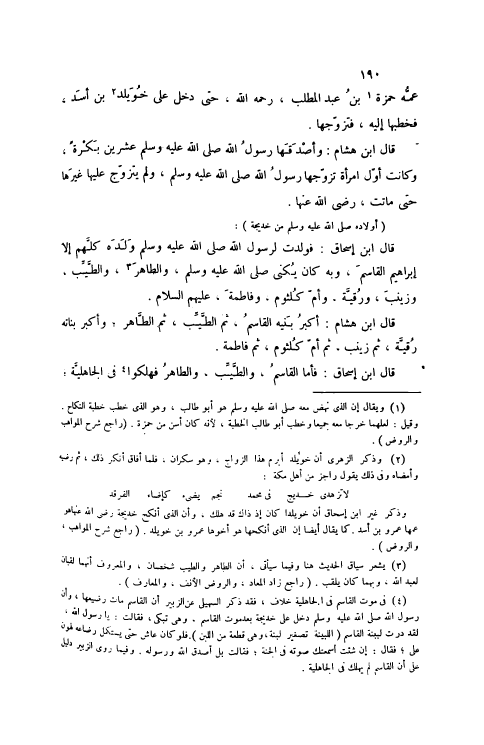 ١٩٠
عمُّه حمزة ١ بنُ عبد المطلب ، رحمه الله ، حتى دخل على خُوَيلد٢ بن أسَد ،
فخطبها إليه ، فتزوّجها .
قال ابن هشام : وأصْدَقَها رسولُ الله صلى الله عليه وسلم عشرين بَكْرةً ،
وكانت أوّل امرأة تزوّجها رسولُ الله صلى الله عليه وسلم ، ولم يتزوّج عليها غيرَها
حتى ماتت ، رضى الله عنها .
( أولاده صلى الله عليه وسلم من خديجة ) :
قال ابن إسحاق : فولدت لرسول الله صلى الله عليه وسلم ولَدَه كلَّهم إلا
إبراهيم القاسمَ ، وبه كان يُكنى صلى الله عليه وسلم ، والطاهرَ٣ ، والطَّيِّب ،
وزينبَ ، ورُقيَّة ، وأمّ كُلثوم ، وفاطمةَ ، عليهم السلام .
قال ابن هشام : أكبرُ بَنيه القاسمُ ، ثم الطَّيِّب ، ثم الطَّاهر ؛ وأكبر بناته
رُقيَّة ، ثم زينب ، ثم أمّ كلثوم ، ثم فاطمة .
قال ابن إسحاق : فأما القاسمُ ، والطَّيِّب ، والطاهرُ فهلكوا٤ فى الجاهليَّة :
(١) ويقال إن الذى نهض معه صلى الله عليه وسلم هو أبو طالب ، وهو الذى خطب خطبة النكاح .
وقيل : لعلهما خرجا معه جميعا وخطب أبو طالب الخطبة ، لأنه كان أسن من حمزة . ( راجع شرح المواهب
والروض ) .
(٢) وذكر الزهرى أن خويلد أبرم هذا الزواج ، وهو سكران ، فلما أفاق أنكر ذلك ، ثم رضيه
وأمضاه وفى ذلك يقول راجز من أهل مكة :
لا تزهدى خديج فى محمد نجم يضىء كإضاء الفرقد
وذكر غير ابن إسحاق أن خويلدا كان إذ ذاك قد هلك ، وأن الذى أنكح خديجة رضى الله عنها هو
عمها عمرو بن أسد . كما يقال أيضا إن الذى أنكحها هو أخوها عمرو بن خويلد . ( راجع شرح المواهب ،
والروض ) .
(٣) يشعر سياق الحديث هنا وفيما سيأتى ، أن الطاهر والطيب شخصان ، والمعروف أنهما لقبان
لعبد الله ، وبهما كان يلقب . ( راجع زاد المعاد ، والروض الأنف ، والمعارف ) .
(٤) فى موت القاسم فى الجاهلية خلاف ، فقد ذكر السهيلى عن الزبير أن القاسم مات رضيعها ، وأن
رسول الله صلى الله عليه وسلم دخل على خديجة بعد موت القاسم . وهى تبكى ، فقالت : يا رسول الله ،
لقد درت لبينة القاسم ( اللبينة تصغير لبنة ، وهى قطعة من اللبن ) . فلو كان عاش حتى يستكمل رضاعه لهون
على ؛ فقال : إن شئت أسمعتك صوته فى الجنة ؛ فقالت بل أصدق الله ورسوله . وفيما روى الزبير دليل
على أن القاسم لم يهلك فى الجاهلية .